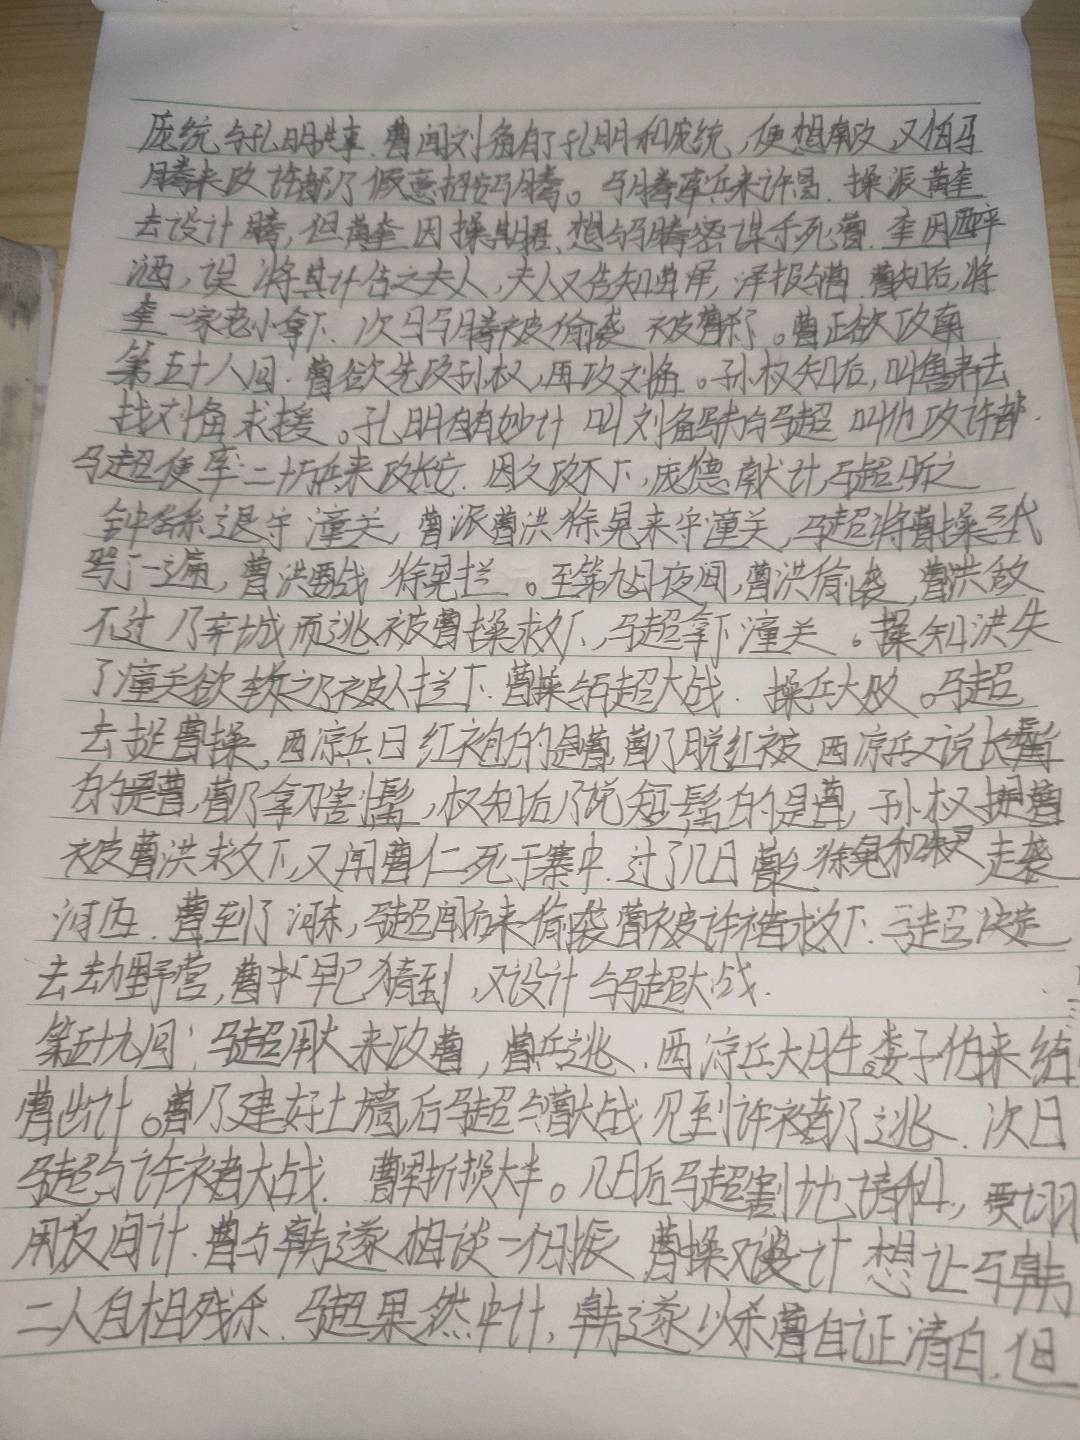 庞统与孔明共事.曹闻刘备有了孔明和庞统,便想南攻,又怕马
腾来攻许都乃假意招安马腾。马腾率兵来许昌.操派黄奎
去设计腾,但黄奎因操其君,想与马腾密谋杀死曹.奎因醉
酒,误将其计告之夫人,夫人又告知苗泽,泽报与曹.曹知后,将
奎一家老小拿下.次日马腾被偷袭 被曹杀了。曹正欲攻南
第五十八回.曹欲先攻孙权,再攻刘备。孙权知后,叫鲁肃去
找刘备求援。孔明自有妙计 叫刘备写书与马超 叫他攻许都.
马超便率二十万兵来攻长安.因久攻不下,庞德献计,马超听之
钟繇退守潼关,曹派曹洪徐晃来守潼关,马超将曹操三代
骂了一遍,曹洪要战 徐晃拦。至第九日夜间,曹洪偷袭,曹洪敌
不过乃弃城而逃被曹操救下、马超拿下潼关。操知洪失
了潼关欲斩之乃被人拦下.曹操与马超大战.操兵大败。马超
去捉曹操,西凉兵曰红袍的是曹,曹乃脱红被 西凉兵又说长髯
的是曹,曹乃拿刀割髯,权知后乃说短髯的是曹,孙权捉曹
被曹洪救下,又闻曹仁死于寨中.过了几日曹令徐晃和朱灵走袭
河西.曹到了河东,马超闻后来偷袭曹被许褚救下.马超决定
去劫野营,曹才早已猜到,又设计与马超大战.
第五十九回:马超用火来攻曹,曹兵逃.西凉兵大胜.娄子伯来给
曹出计。曹乃建好土墙后马超与曹大战 见到许褚乃逃.次日
马超与许褚大战.曹军折损大半。几日后马超割地请和,贾诩
用反间计.曹与韩遂相谈一伯振,曹操又设计 想让马韩
二人自相残杀.马超果然中计,韩遂以杀曹自证清白.但